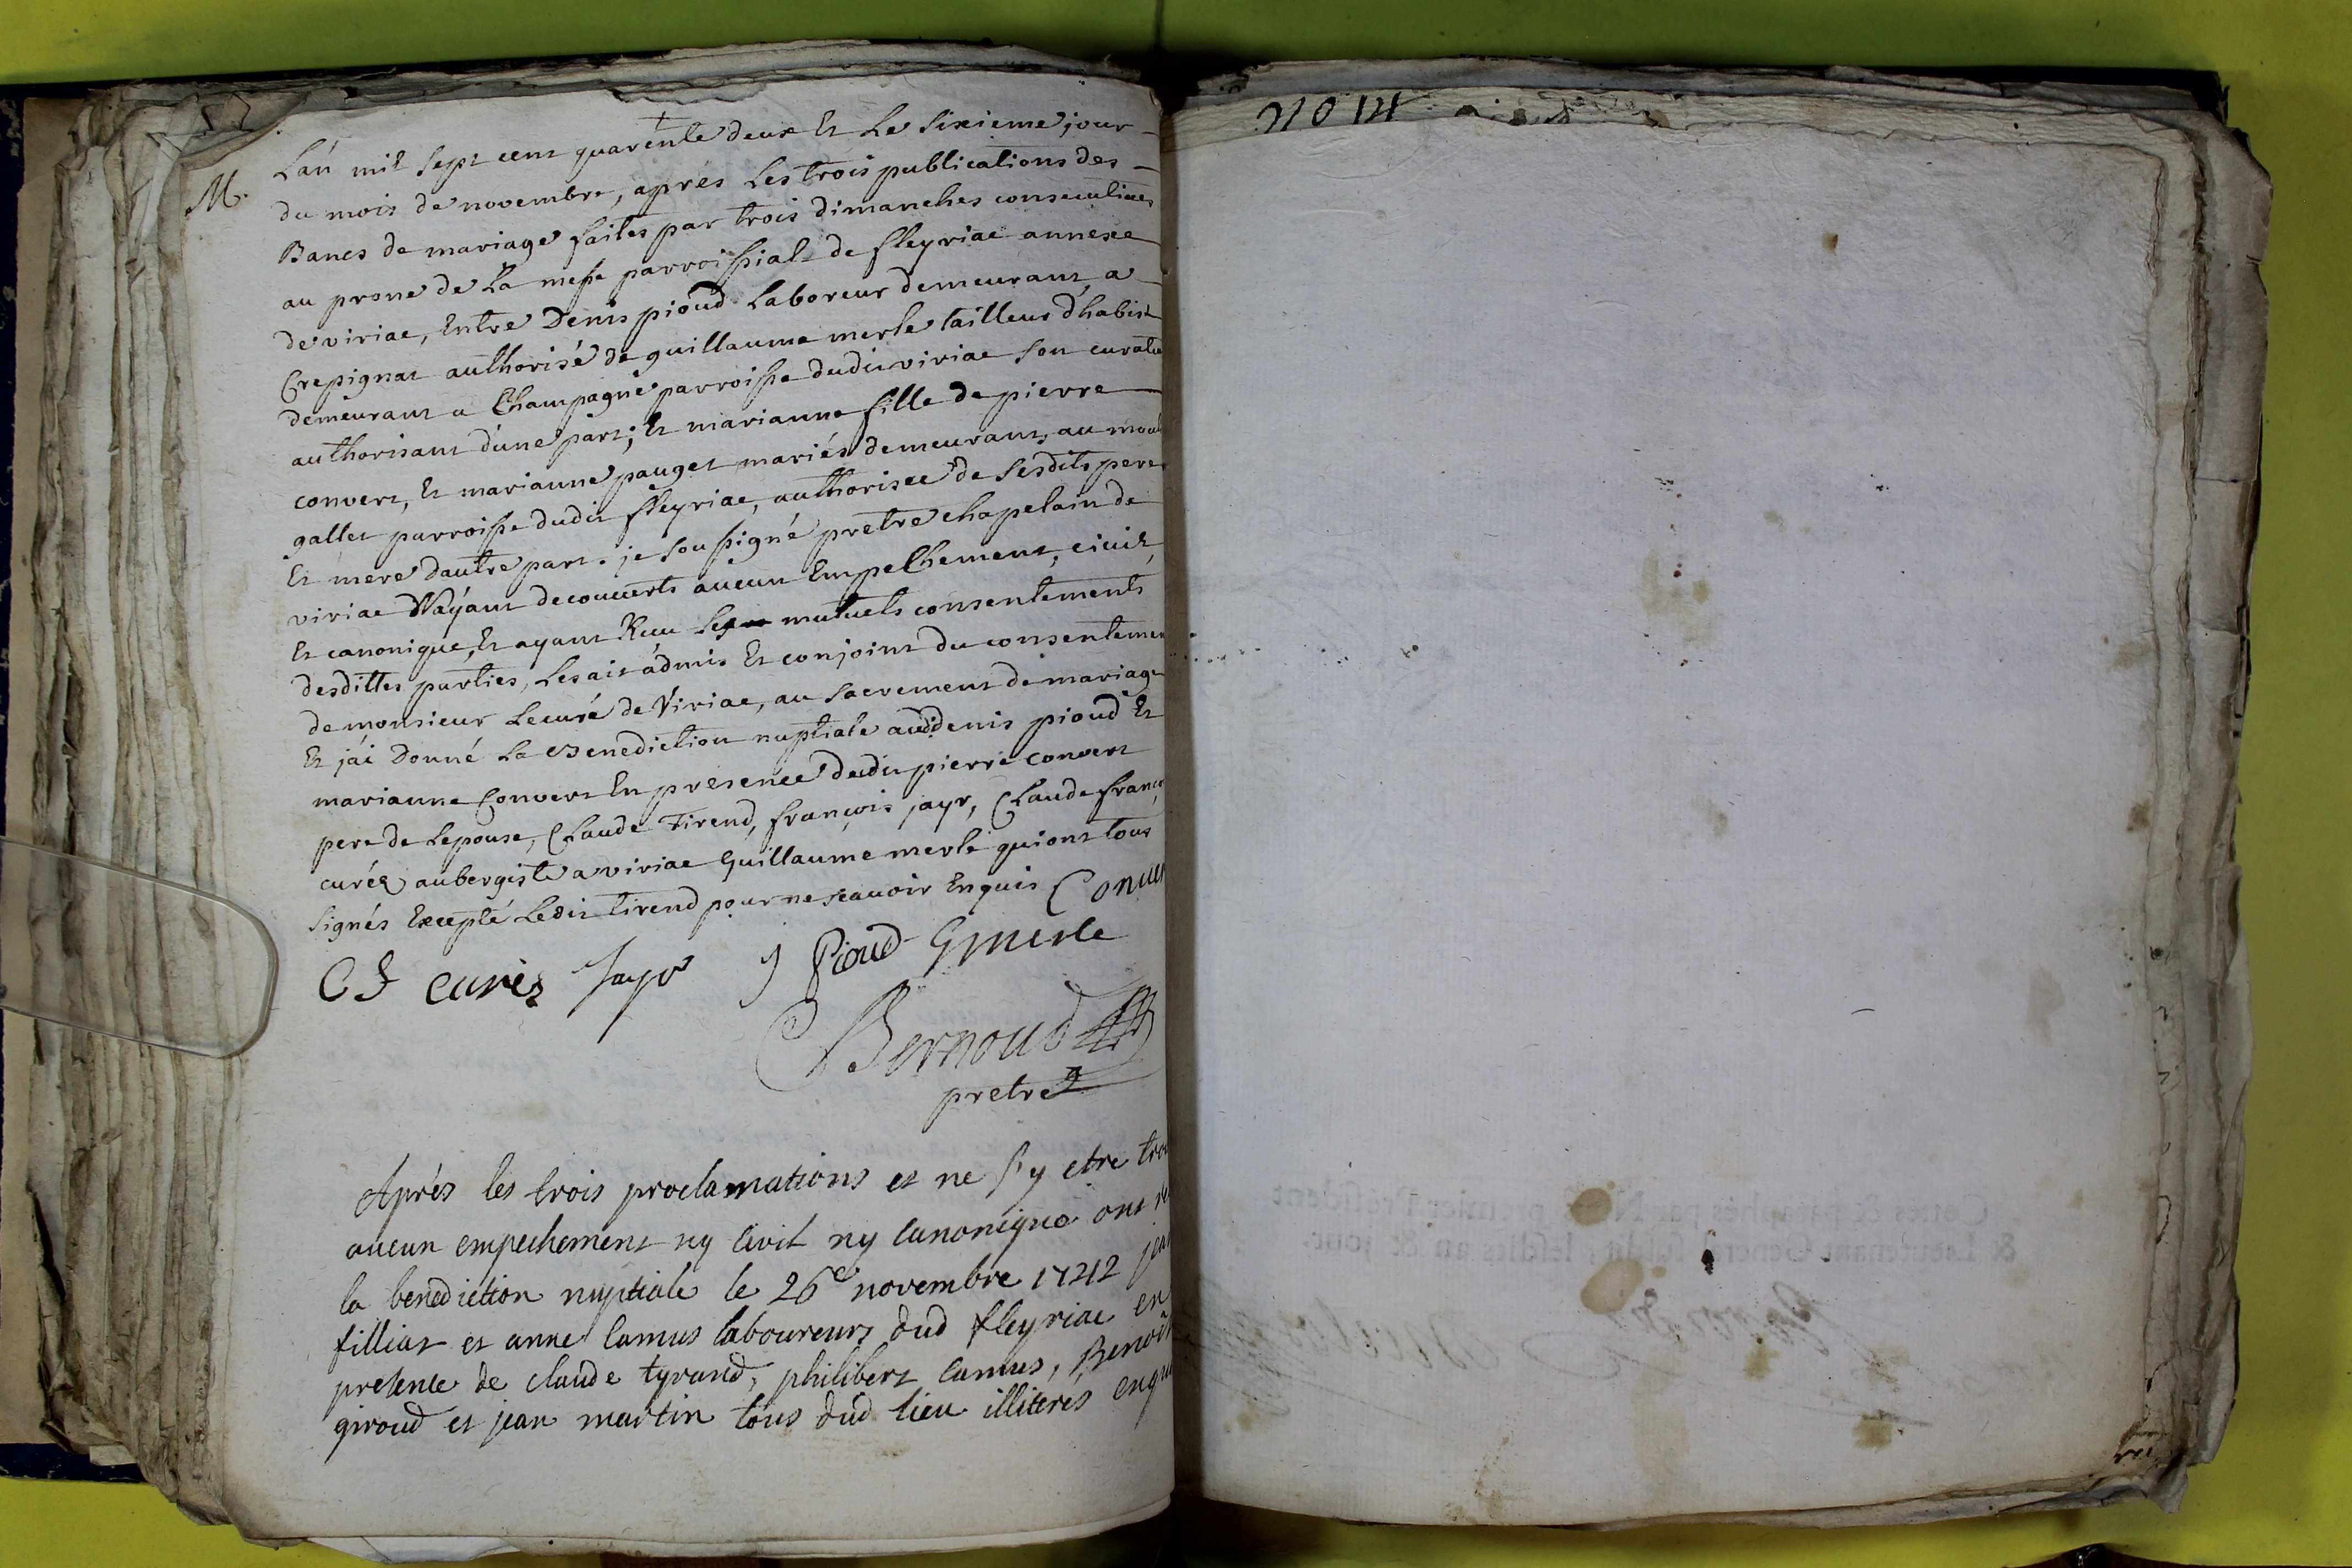 M.
L'an mil sept cent quarente deux Et Le sixieme jour
du mois de novembre, aprés Les trois publications des
Bancs de mariage faites par trois dimanches consecutives
au prone de La messe parroissiale de fleyriac annexe
de viriac, Entre Denis pioud Laboreur demeurant a
Crepignat authorisé de guillaume merle tailleur d'habist
demeurant a Champagne parroisse dudit viriac son curateur
authorisant d'une part; Et marianne fille de pierre
convert, Et marianne pauget mariés demeurant au
gallet parroisse dudit fleyriac, authorisée de sesdits pere
Et mere d'autre part. je soussigné pretre chapelain de
viriac N'ayant decouverts aucun Empechement, civil
Et canonique, Et ayant Receu Les mutuels consentements
desdittes parties, Les ait admis Et conjoint du consentement
de monsieur Lecuré de Viriac, au sacrement de mariage
Et j'ai Donné La Benediction nuptiale aud denis pioud Et
marianne Convert En presence dudit pierre convert
pere de Lepouse, Claude Tirend, françois jayr, Claude franç
curéz aubergiste a viriac Guillaume merle qui ont tous
signés Excepté Ledit tirend pour ne scavoir Enquis Conver
C F curéz Jayr J Pioud G merle
Bernoud
pretre
Aprés les trois proclamations et ne s'y etre trou
aucun empechement ny civil ny canonique ont re
la benediction nuptiale le 26e novembre 1742 jean
filliat et anne camus laboureurs dud fleyriac en
presence de claude tyrand, philibert camus, Benoit
giroud et jean martin tous dud lieu illiterés enqui